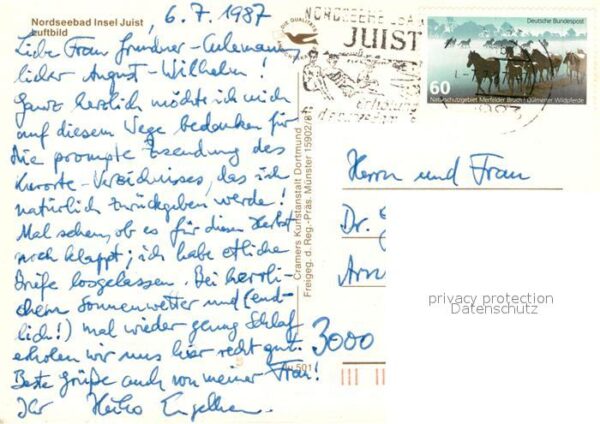 Nordseebad Insel Juist
Luftbild
6.7.1987
Liebe Frau
lieber August-Wilhelm!
Ganz herzlich möchte ich mich
auf diesem Wege bedanken für
die prompte Zusendung des
Kurorte-Verzeichnisses, das ich
natürlich zurückgeben werde!
Mal sehen, ob es für diesen Herbst
noch klappt; ich habe etliche
Briefe losgelassen. Bei herrli-
chem Sonnenwetter und (end-
lich!) mal wieder genug Schlaf
erholen wir uns hier recht gut.
Beste Grüße auch von meiner Frau!
Ihr Heiko Engelken
Cramers Kunstanstalt Dortmund
Freigeg. d. Reg.-Präs. Münster 15902/81
Ju 501
DIE QUALITÄTS
JUIST
Erholung
Deutsche Bundespost
60
Naturschutzgebiet Merfelder Bruch · Dülmener Wildpferde
Herrn und Frau
Dr.
3000
privacy protection
Datenschutz